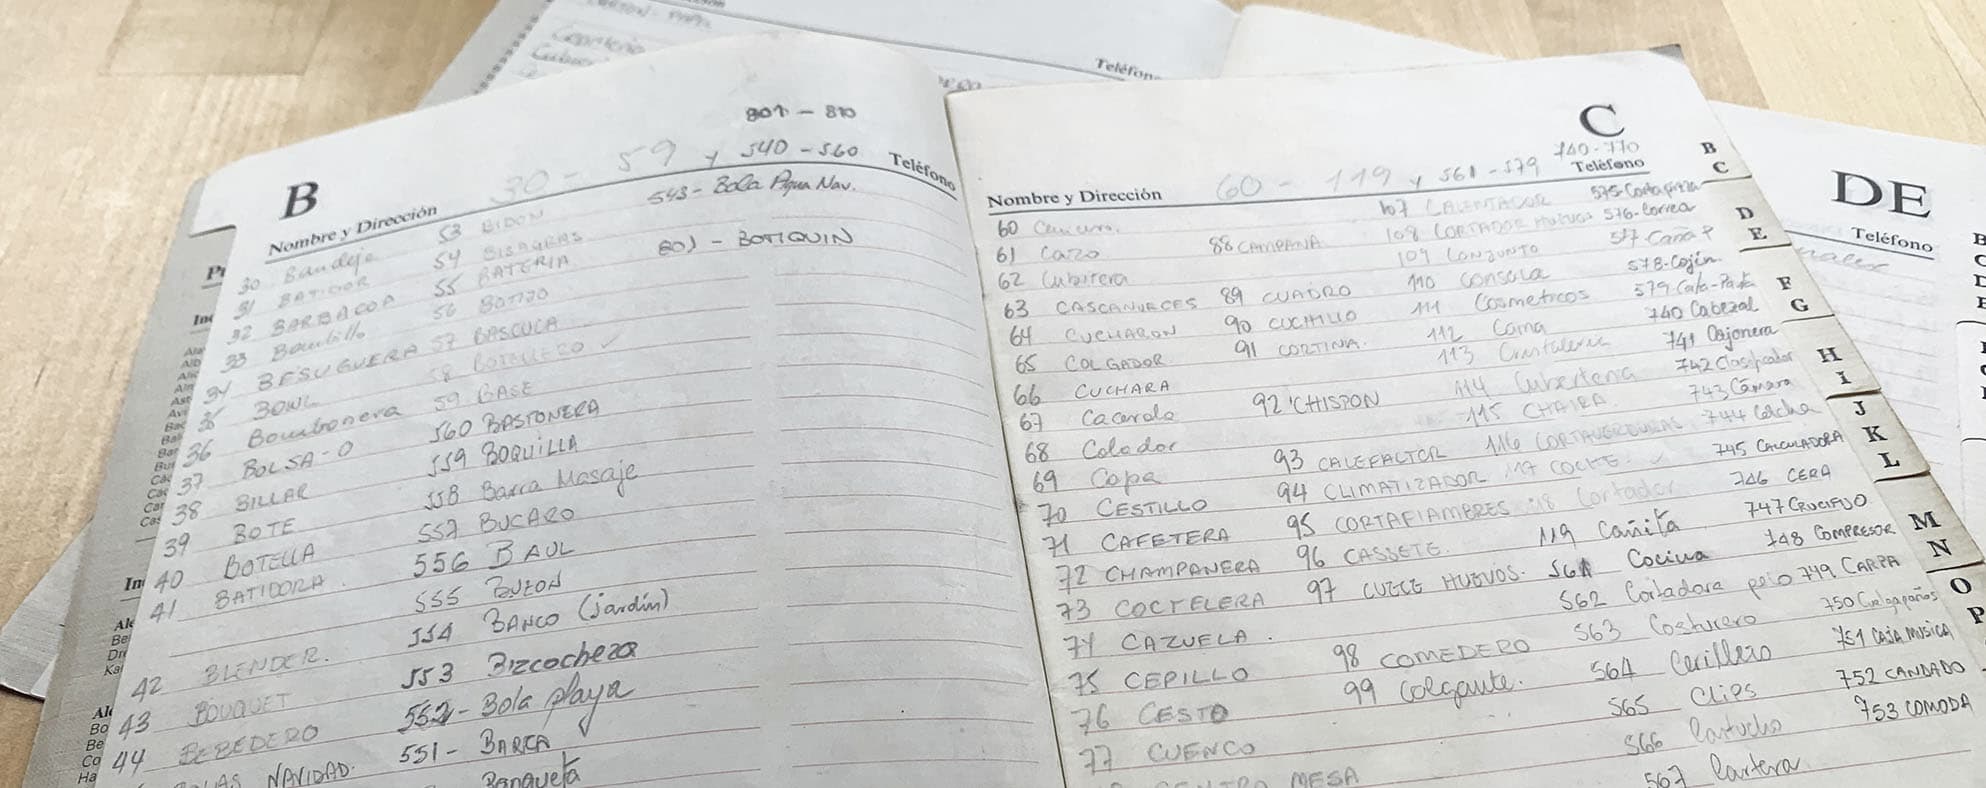 Teléfono
801 - 810
B
30 - 59 y 540 - 560
Teléfono
Nombre y Dirección
53 BIDON
543 - Bola Agua Nav.
30 Bandeja
54 BISAGRAS
801 - BOTIQUIN
31 BATIDOR
55 BATERIA
32 BARBACOA
56 BOTIJO
33 Bombillo
57 BASCULA
34 BESUGUERA
58 BOTELLERO ✓
35 BOWL
59 BASE
36 Bombonera
560 BASTONERA
37 BOLSA-O
559 BOQUILLA
38 BILLAR
558 Barra Masaje
39 BOTE
557 BUCARO
40 BOTELLA
556 BAUL
41 BATIDORA
555 BUZON
554 BANCO (jardín)
42 BLENDER.
553 Bizcochera
43 BOUQUET
552 - Bola playa
44 BEBEDERO
551 - BARCA
NAVIDAD.
Banqueta
C
740-770
60 - 119 y 561 - 579
Teléfono
Nombre y Dirección
60
61 Cazo
62 Cubitera
63 CASCANUECES
64 CUCHARON
65 COLGADOR
66 CUCHARA
67 Cacerola
68 Colador
69 Copa
70 CESTILLO
71 CAFETERA
72 CHAMPANERA
73 COCTELERA
74 CAZUELA.
75 CEPILLO
76 CESTO
77 CUENCO
CENTRO MESA
88 CAMPANA
89 CUADRO
90 CUCHILLO
91 CORTINA.
92 CHISPON
93 CALEFACTOR
94 CLIMATIZADOR
95 CORTAFIAMBRES
96 CASSETE.
97 CUECE HUEVOS.
98 COMEDERO
99 Colgante.
107 CALENTADOR
108 CORTADOR HUEVOS
109 CONJUNTO
110 Consola
111 Cosmeticos
112 Cama
113 Cristaleria
114 Cuberteria
115 CHAIRA.
116 CORTAVERDURAS
117 COCHE. ✓
118 Cortador
119 Cañita
561 Cocina
562 Cortadora pelo
563 Costurero
564 Cerillero
565 Clips
566 Cartucho
567 Cartera
575 Cortapizza
576 - Correa
577 Caña P
578 - Cojín
579
740 Cabezal
741 Cajonera
742 Clasificador
743 Cámara
744 Colcha
745 CALCULADORA
746 CERA
747 CRUCIFIJO
748 COMPRESOR
749 CARPA
750 Cuelgapaños
751 CAJA MUSICA
752 CANDADO
753 COMODA
B
C
D
E
F
G
H
I
J
K
L
M
N
O
P
DE
Teléfono